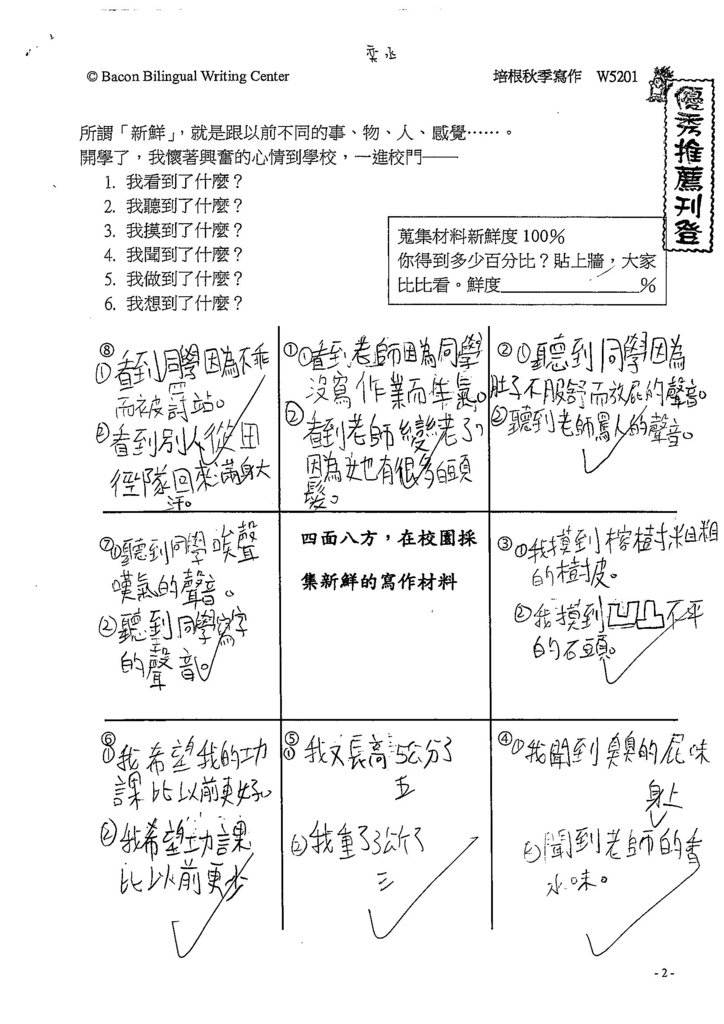 奕丞
© Bacon Bilingual Writing Center
培根秋季寫作 W5201
優秀推薦刊登
所謂「新鮮」，就是跟以前不同的事、物、人、感覺……。
開學了，我懷著興奮的心情到學校，一進校門——
1. 我看到了什麼？
2. 我聽到了什麼？
3. 我摸到了什麼？
4. 我聞到了什麼？
5. 我做到了什麼？
6. 我想到了什麼？
蒐集材料新鮮度 100%
你得到多少百分比？貼上牆，大家
比比看。鮮度__________%
⑧
①看到同學因為不乖
而被罰站。
②看到別人從田
徑隊回來滿身大
汗。
①①看到老師因為同學
沒寫作業而生氣。
②看到老師變老了，
因為她有很多白頭
髮。
②①聽到同學因為
肚子不服舒而放屁的聲音。
②聽到老師罵人的聲音。
⑦①聽到同學唉聲
嘆氣的聲音。
②聽到同學寫字
的聲音。
四面八方，在校園採
集新鮮的寫作材料
③①我摸到榕樹粗粗
的樹皮。
②我摸到凹凸不平
的石頭。
⑥
①我希望我的功
課比以前更好。
②我希望功課
比以前更少
⑤
①我又長高5公分了
五
②我重了3公斤了
三
④①我聞到臭臭的屁味
身上
②聞到老師的香
水味。
- 2 -